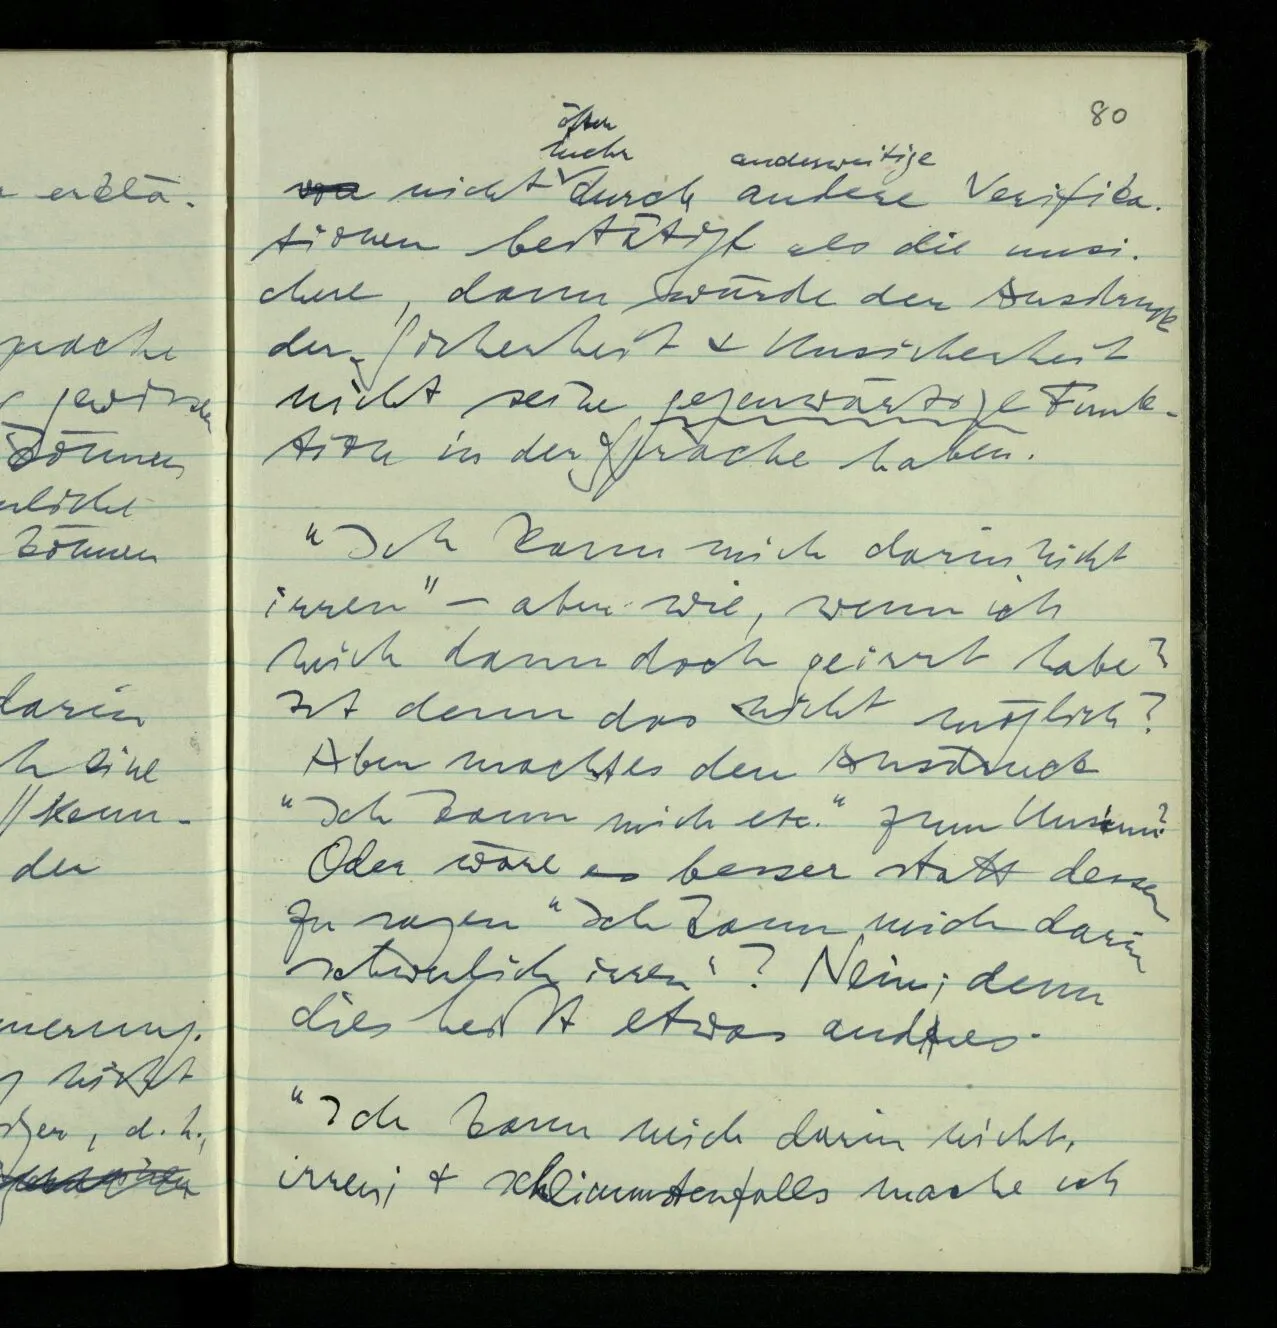 80
öfter
mehr
anderweitige
nicht durch andere Verifika-
tionen bestätigt als die unsi-
chere, dann würde der Ausdruck
der Sicherheit & Unsicherheit
nicht seine gegenwärtige Funk-
tion in der Sprache haben.
"Ich kann mich darin nicht
irren" – aber wie, wenn ich
mich dann doch geirrt habe?
Ist denn das nicht möglich?
Aber macht es den Ausdruck
"Ich kann mich etc." zum Unsinn?
Oder wäre es besser statt dessen
zu sagen "Ich kann mich darin
schwerlich irren"? Nein; denn
dies heißt etwas andres.
"Ich kann mich darin nicht
irren; & schlimmstenfalls mache ich
erklä-
prache
gewissen
können
können
darin
eine
// kenn-
der
nicht
d.h.,